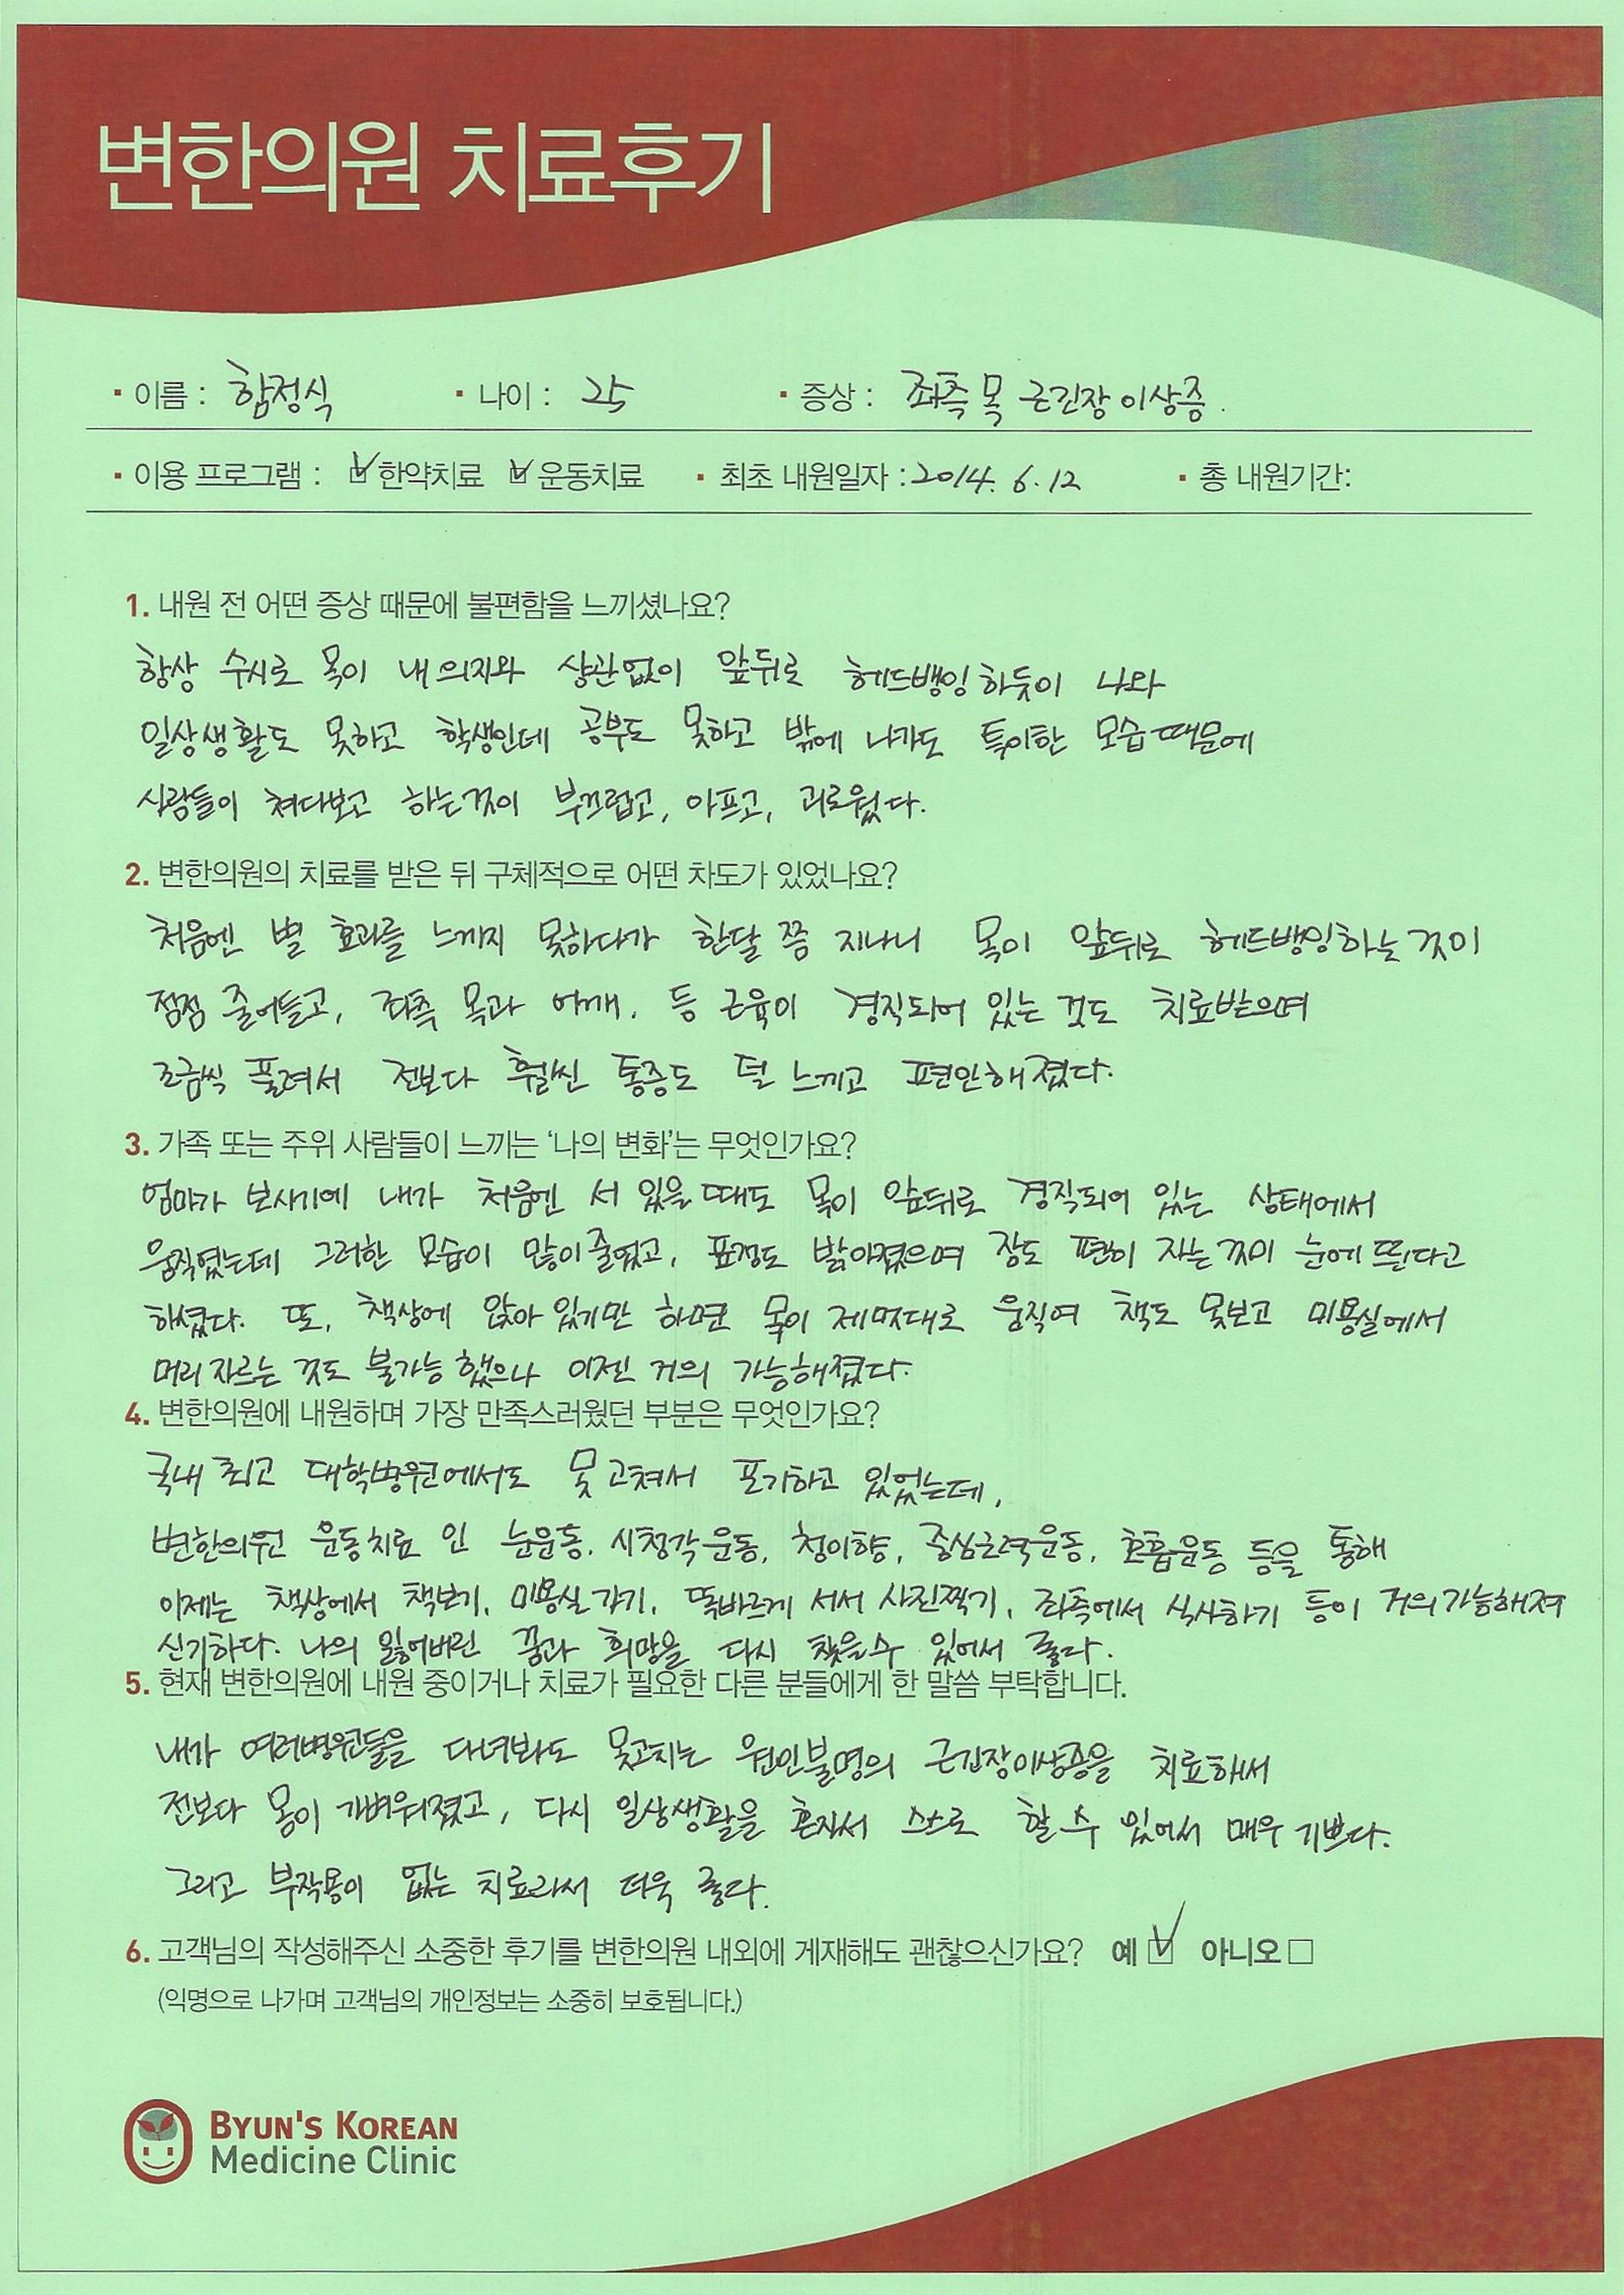 변한의원 치료후기
· 이름 : 함정식 · 나이 : 25 · 증상 : 좌측 목 근긴장 이상증.
· 이용 프로그램 : ☑한약치료 ☑운동치료 · 최초 내원일자 : 2014. 6. 12 · 총 내원기간:
1. 내원 전 어떤 증상 때문에 불편함을 느끼셨나요?
항상 수시로 목이 내 의지와 상관없이 앞뒤로 헤드뱅잉 하듯이 나와
일상생활도 못하고 학생인데 공부도 못하고 밖에 나가도 특이한 모습 때문에
사람들이 쳐다보고 하는것이 부끄럽고, 아프고, 괴로웠다.
2. 변한의원의 치료를 받은 뒤 구체적으로 어떤 차도가 있었나요?
처음엔 별 효과를 느끼지 못하다가 한달 쯤 지나니 목이 앞뒤로 헤드뱅잉하는 것이
점점 줄어들고, 좌측 목과 어깨, 등 근육이 경직되어 있는 것도 치료받으며
조금씩 풀려서 전보다 훨씬 통증도 덜 느끼고 편안해졌다.
3. 가족 또는 주위 사람들이 느끼는 '나의 변화'는 무엇인가요?
엄마가 보시기에 내가 처음엔 서 있을 때도 목이 앞뒤로 경직되어 있는 상태에서
움직였는데 그러한 모습이 많이 줄었고, 표정도 밝아졌으며 잠도 편히 자는 것이 눈에 띈다고
하셨다. 또, 책상에 앉아 있기만 하면 목이 제멋대로 움직여 책도 못보고 미용실에서
머리 자르는 것도 불가능 했으나 이젠 거의 가능해졌다.
4. 변한의원에 내원하며 가장 만족스러웠던 부분은 무엇인가요?
국내 최고 대학병원에서도 못 고쳐서 포기하고 있었는데,
변한의원 운동치료 인 눈운동, 시청각운동, 청이향, 중심근력운동, 호흡운동 등을 통해
이제는 책상에서 책보기, 미용실 가기, 똑바르게 서서 사진찍기, 좌측에서 식사하기 등이 거의 가능해져
신기하다. 나의 잃어버린 꿈과 희망을 다시 찾을수 있어서 좋다.
5. 현재 변한의원에 내원 중이거나 치료가 필요한 다른 분들에게 한 말씀 부탁합니다.
내가 여러병원들을 다녀봐도 못고치는 원인불명의 근긴장이상증을 치료해서
전보다 몸이 가벼워졌고, 다시 일상생활을 혼자서 스스로 할 수 있어서 매우 기쁘다.
그리고 부작용이 없는 치료라서 더욱 좋다.
6. 고객님의 작성해주신 소중한 후기를 변한의원 내외에 게재해도 괜찮으신가요? 예 ☑ 아니오 □
(익명으로 나가며 고객님의 개인정보는 소중히 보호됩니다.)
BYUN'S KOREAN
Medicine Clinic